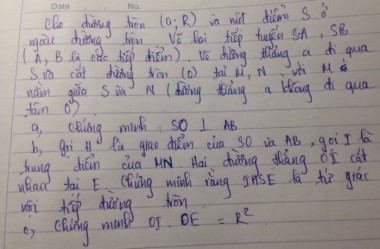 Date No.
Cho đường tròn (O; R) và một điểm S ở
ngoài đường tròn Vẽ hai tiếp tuyến SA, SB
(A, B là các tiếp điểm). Vẽ đường thẳng a đi qua
S và cắt đường tròn (O) tại M, N, với M
nằm giữa S và N (đường thẳng a không đi qua
tâm O)
a, Chứng minh: SO ⊥ AB
b, gọi H là giao điểm của SO và AB, gọi I là
trung điểm của MN Hai đường thẳng OI cắt
nhau tại E Chứng minh rằng IHSE là tứ giác
nội tiếp đường tròn
c, Chứng minh OI . OE = R²